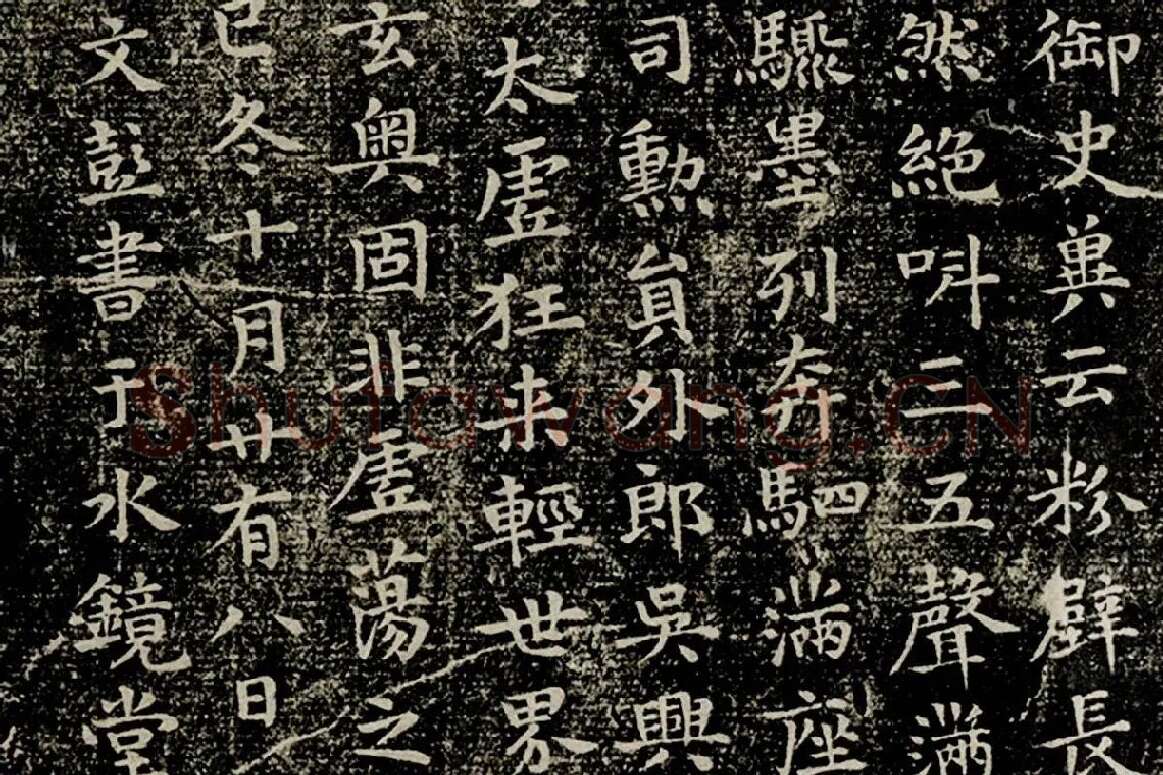 御史兾云粉壁長
然絶呌三五聲滿
驟墨列奔駟滿座
司勳員外郎吳興
太虛狂来輕世界
玄奥固非虛蕩之
巳冬十月廿有八日
文彭書于水鏡堂
Shufawang.CN